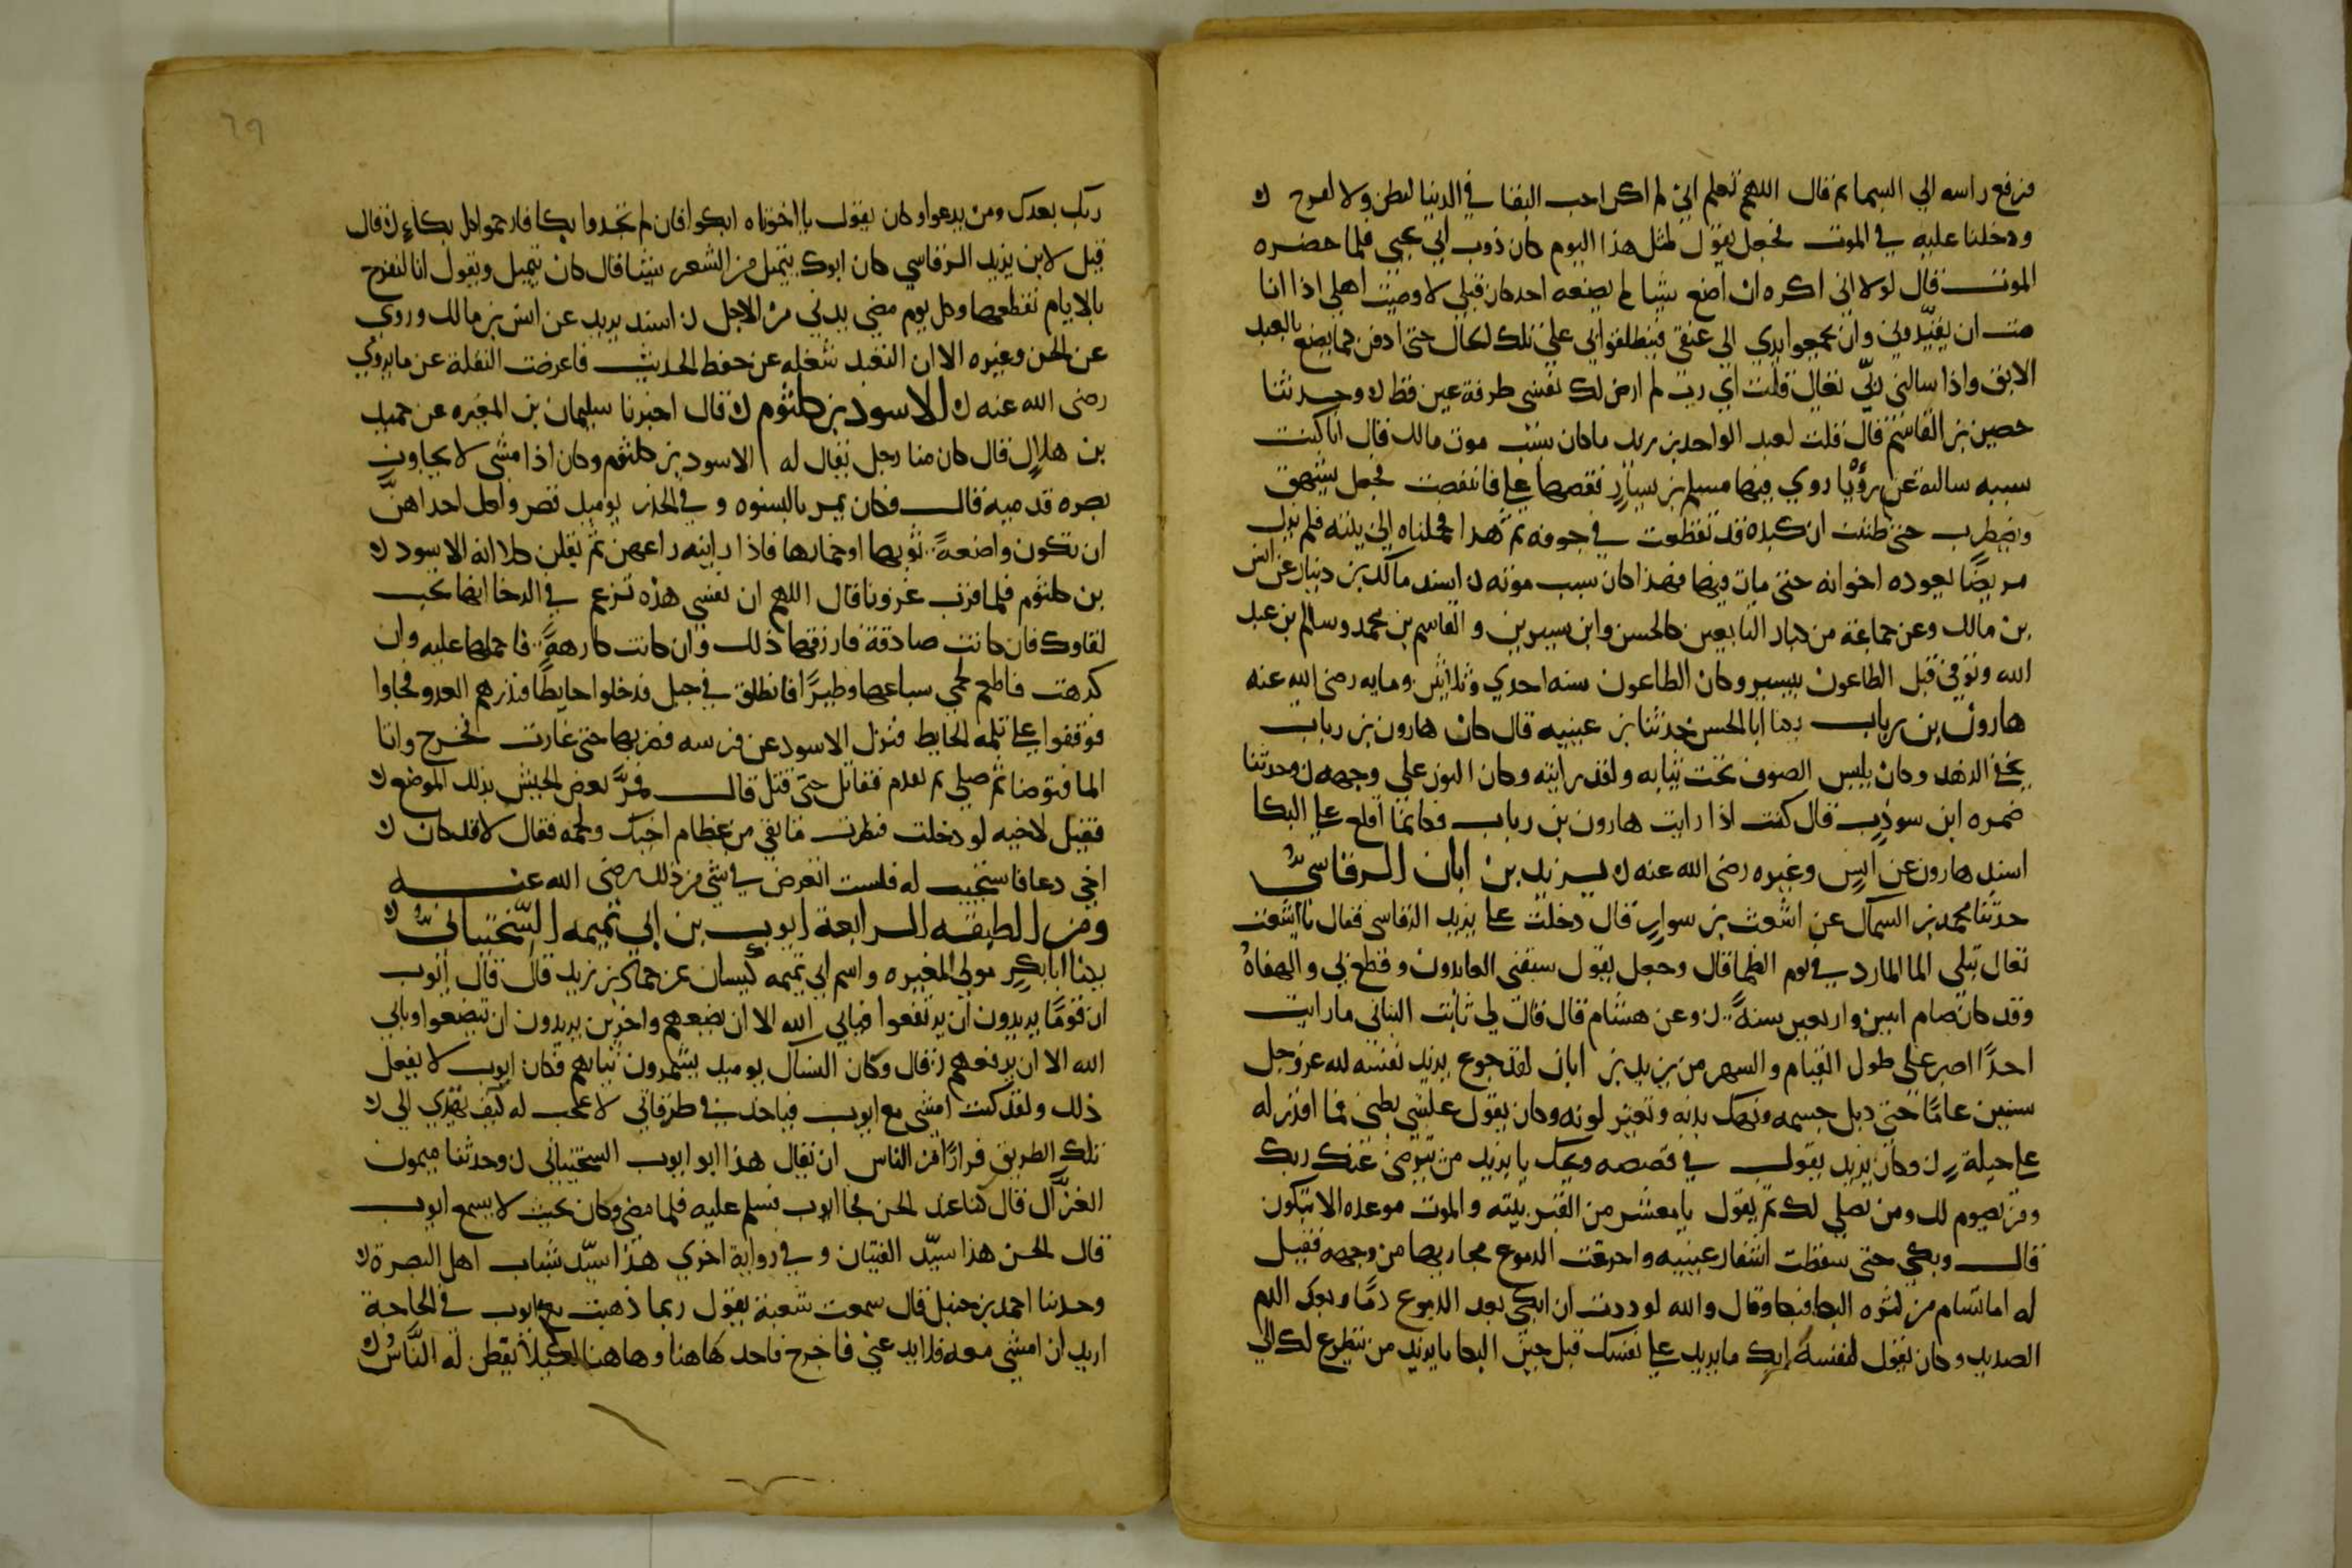 فرفع راسه الي السما ثم قال اللهم تعلم اني لم اكن احب البقا في الدنيا لبطن ولا لفرج
ودخلنا عليه في الموت فجعل يقول لمثل هذا اليوم كان دوب ابي يحيي فلما حضره
الموت قال لولا اني اكره ان اصنع شيا لم يصنعه احد كان قبلي لاوصيت اهلي اذا انا
مت ان يقيدوني وان يجمعوا يدي الي عنقي فينطلقوا بي علي تلك الحال حتي ادفن كما يصنع بالعبد
الابق واذا سالني ربي تعالي قلت اي رب لم ارض لك نفسي طرفة عين قط وحدثنا
حصين بن القاسم قال قلت لعبد الواحد بن زيد ما كان سبب موت مالك قال انا كنت
سببه سالته عن رؤيا روي فيها مسلم بن يسار فقصها علي فانتفضت فجعل يشهق
ويضطرب حتي ظننت ان كبده قد تقطعت في جوفه ثم هدا فحملناه الي بيته فلم يزل
مريضا يعوده اخوانه حتي مات فيها فهذا كان سبب موته اسند مالك بن دينار عن انس
بن مالك وعن جماعة من كبار التابعين كالحسن وابن سيرين والقاسم بن محمد وسالم بن عبد
الله وتوفي قبل الطاعون بيسير وكان الطاعون سنه احدي وثلاثين ومايه رضي الله عنه
هارون بن رياب يكنا ابا الحسن حدثنا بن عيينه قال كان هارون بن رياب
يخفي الزهد وكان يلبس الصوف تحت ثيابه ولقد رايته وكان النور علي وجهه وحدثنا
ضمره ابن سوذب قال كنت اذا رايت هارون بن رياب فكانما اقلع عن البكا
اسند هارون عن انس وغيره رضي الله عنه يزيد بن ابان الرقاشي
حدثنا محمد بن السماك عن اشعث بن سوار قال دخلت علي يزيد الرقاشي فقال يا اشعث
تعال نبكي الما البارد في يوم الظما قال وجعل يقول سبقني العابدون وقطع بي والهفاه
وقد كان صام اثنين واربعين سنة وعن هشام قال قال لي ثابت البناني ما رايت
احدا اصبر علي طول القيام والسهر من يزيد بن ابان لقد جوع يزيد نفسه لله عز وجل
ستين عاما حتي ذبل جسمه ونهك بدنه وتغير لونه وكان يقول غلبني بطني فما اقدر له
علي حيلة وكان يزيد يقول في قصصه ويحك يا يزيد من يترضي عنك ربك
ومن يصوم لك ومن يصلي لك ثم يقول يا معشر من القبر بيته والموت موعده الا تبكون
قال وبكي حتي سقطت اشفار عينيه واحرقت الدموع مجاريها من وجهه فقيل
له اما تسام من كثره البكا فبكا وقال والله لوددت ان ابكي بعد الدموع دما وبعد الدم
الصديد وكان يقول لنفسه ابك يا يزيد علي نفسك قبل حين البكا يا يزيد من يتطوع لك الي
ربك بعدك ومن يدعوا وكان يقول يا اخوتاه ابكوا فان لم تجدوا بكا فارحموا كل بكاء قال
قيل لابن يزيد الرقاشي كان ابوك يتمثل من الشعر شيئا قال كان يتمثل ويقول انا لنفرح
بالايام نقطعها وكل يوم مضي يدني من الاجل اسند يزيد عن انس بن مالك وروي
عن الحسن وغيره الا ان التعبد شغله عن حفظ الحديث فاعرضت النقلة عن ما يروي
رضي الله عنه الاسود بن كلثوم قال اخبرنا سليمان بن المغيره عن حميد
بن هلال قال كان منا رجل يقال له الاسود بن كلثوم وكان اذا مشي لا يجاوز
بصره قدميه قال فكان يمر بالنسوه وفي الجدر يوميذ قصر ولعل احداهن
ان تكون واضعة ثوبها او خمارها فاذا راينه راعهن ثم يقلن كلا انه الاسود
بن كلثوم فلما قرب غزونا قال اللهم ان نفسي هذه تزعم في الرخا انها تحب
لقاوك فان كانت صادقة فارزقها ذلك وان كانت كارهة فاحملها عليه وان
كرهت فاطعم لحمي سباعها وطيرا فانطلق في خيل فدخلوا حايطا فنذر بهم العدو فجاوا
فوقفوا علي ثلمه الحايط فنزل الاسود عن فرسه فضربها حتي غارت فخرج واتا
الما فتوضا ثم صلي ثم تقدم فقاتل حتي قتل قال فمر بعض الجيش بذلك الموضع
فقيل لاخيه لو دخلت فنظرت ما بقي من عظام اخيك ولحمه فقال لا قد كان
اخي دعا فاستجيب له فلست اتعرض في شي من ذلك رضي الله عنه
ومن الطبقه الرابعة ايوب بن ابي تميمه السختياني
يكنا ابا بكر مولي المغيره واسم ابي تميمه كيسان عن حماد بن زيد قال قال ايوب
ان قوما يريدون ان يرتفعوا فيابي الله الا ان يضعهم واخرين يريدون ان يتضعوا ويابي
الله الا ان يرفعهم قال وكان النساك يوميذ يشمرون ثيابهم فكان ايوب لا يفعل
ذلك ولقد كنت امشي مع ايوب فياخذ بي في طرقاتي لاعجب له كيف يهتدي الي
تلك الطريق فرارا من الناس ان يقال هذا ابو ايوب السختياني وحدثنا ميمون
الغزال قال كنا عند الحسن فجا ايوب فسلم عليه فلما مضي وكان بحيث لا يسمع ايوب
قال الحسن هذا سيد الفتيان وفي رواية اخري هذا سيد شباب اهل البصرة
وحدثنا احمد بن حنبل قال سمعت شعبة يقول ربما ذهبت مع ايوب في الحاجة
اريد ان امشي معه فلا يدعني فاخرج فاخذ هاهنا وهاهنا لكيلا يفطن له الناس